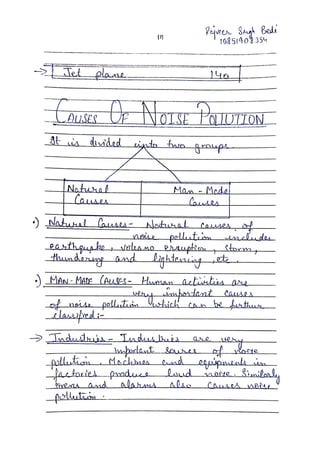 Rajveer Singh Bedi
10851908354
→ Jet plane 140
CAUSES OF NOISE POLLUTION
It is divided into two groups.
Natural Causes
Man-Made Causes
•) Natural Causes- Natural causes of
noise pollution includes
earthquake, volcano eruption, storm,
thundering and lightening, etc.
•) MAN-MADE CAUSES- Human activities are
very important causes
of noise pollution which can be further
classified:-
→ Industries- Industries are very
important source of noise
pollution. Machines and equipments in
factories produce loud noise. Similarly
sirens and alarms also causes noise
pollution.